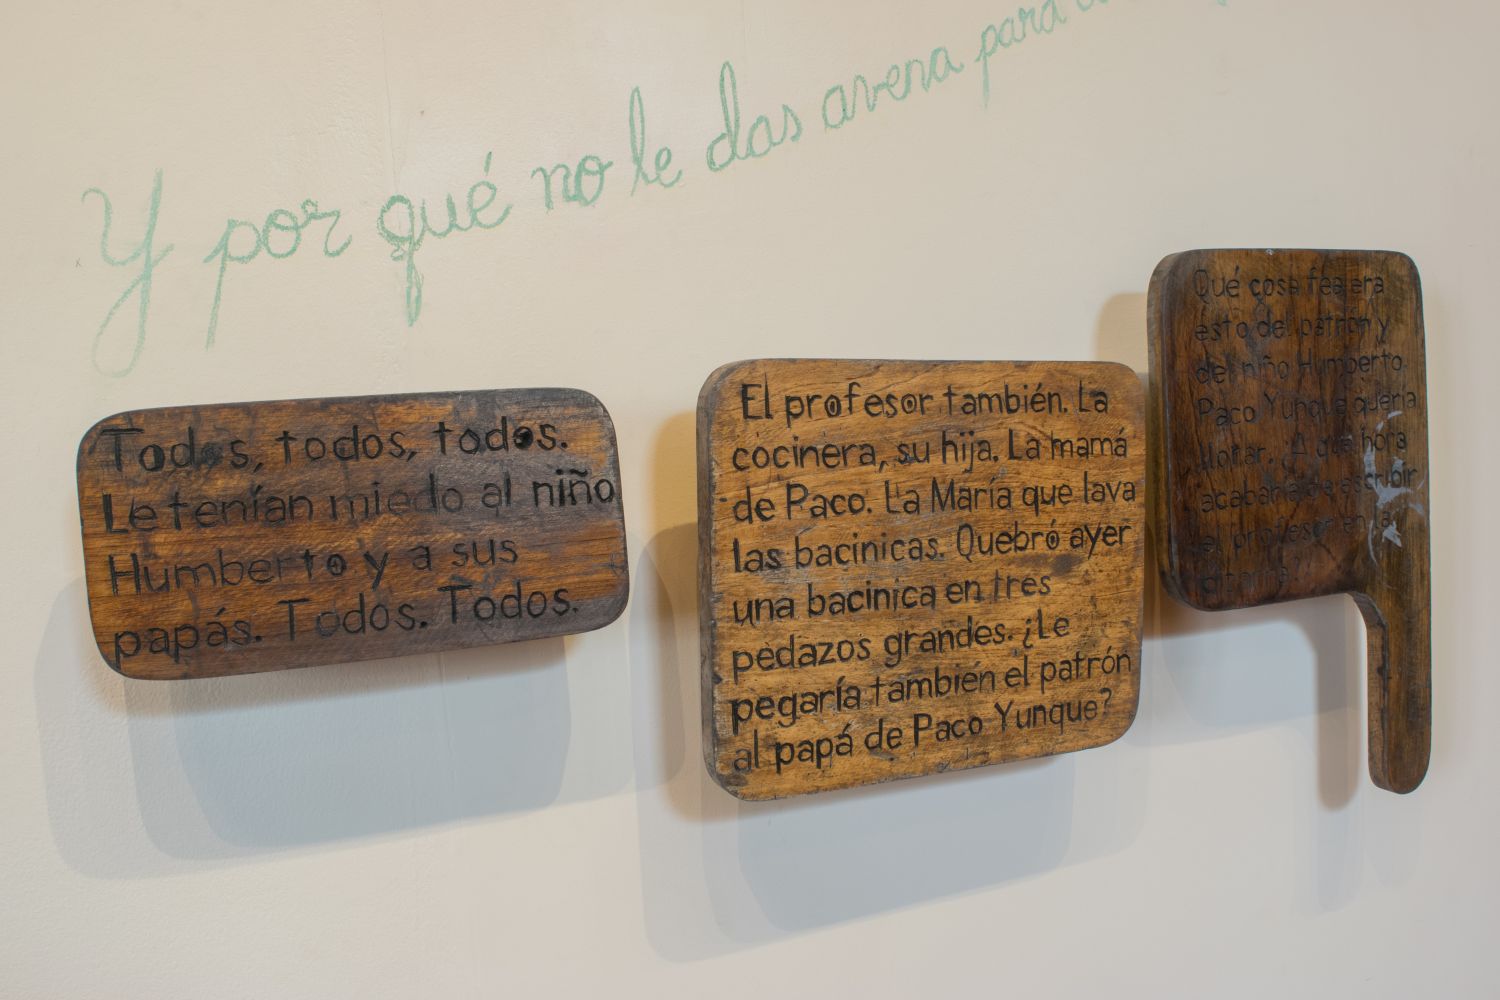 Y por qué no le das avena para
Todos, todos, todos.
Le tenían miedo al niño
Humberto y a sus
papás. Todos. Todos.
El profesor también. La
cocinera, su hija. La mamá
de Paco. La María que lava
las bacinicas. Quebró ayer
una bacinica en tres
pedazos grandes. ¿Le
pegaría también el patrón
al papá de Paco Yunque?
Qué cosa fea era
esto del patrón y
del niño Humberto.
Paco Yunque quería
llorar. ¿A qué hora
acabaría de escribir
el profesor en la
pizarra?